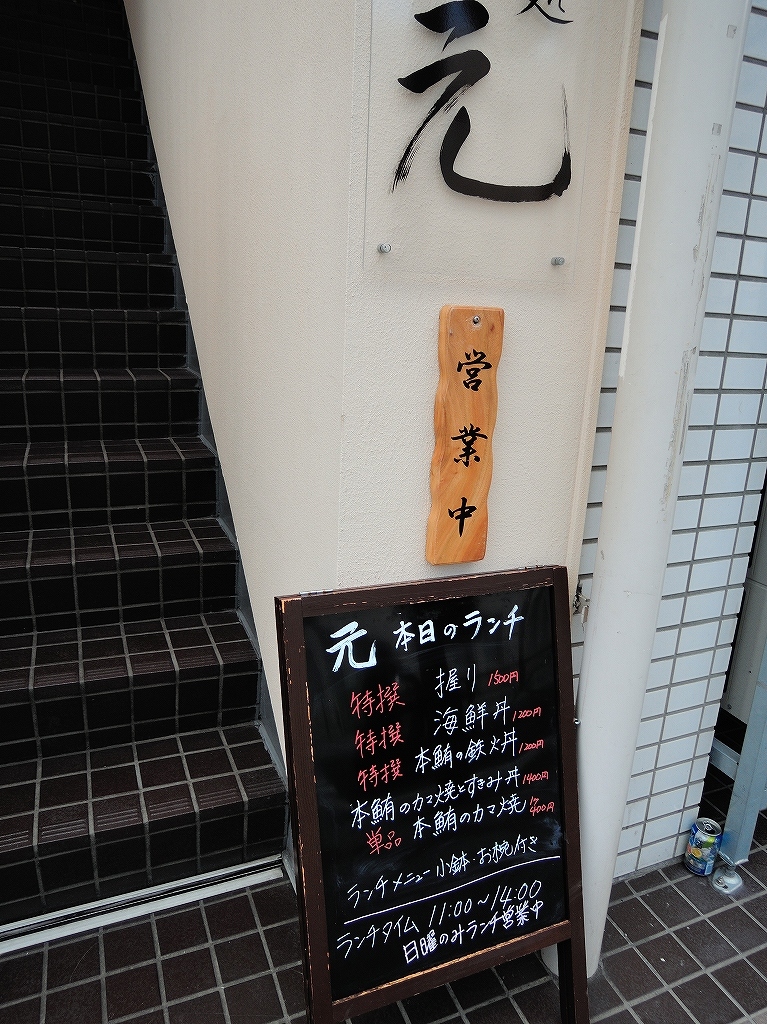 処
元
営業中
元 本日のランチ
特撰 握り 1500円
特撰 海鮮丼 1200円
特撰 本鮪の鉄火丼 1200円
本鮪のカマ焼とすきみ丼 1400円
単品 本鮪のカマ焼 400円
ランチメニュー小鉢・お椀付き
ランチタイム 11:00~14:00
日曜のみランチ営業中